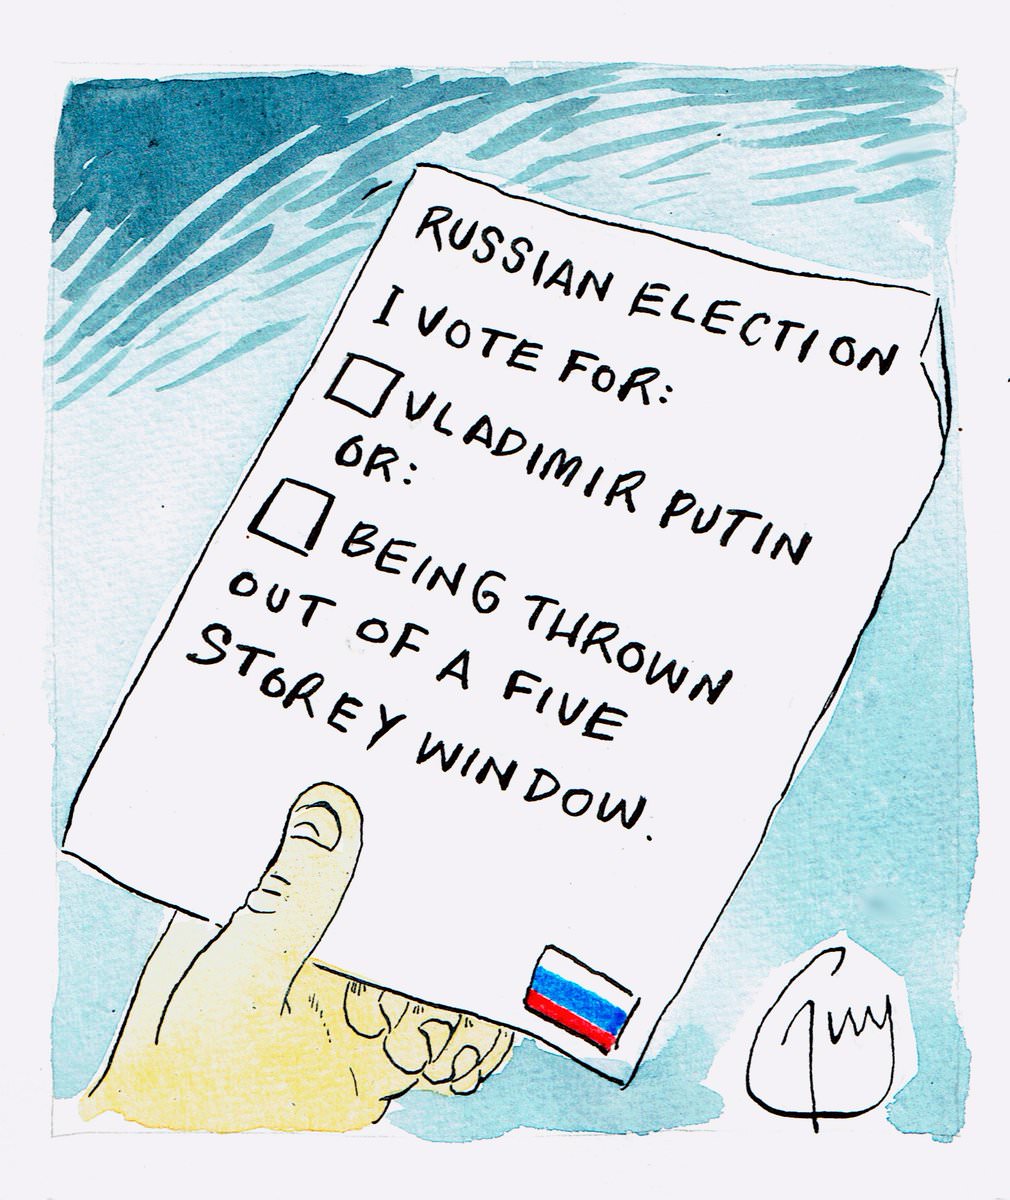 RUSSIAN ELECTION
I VOTE FOR:
VLADIMIR PUTIN
OR:
BEING THROWN
OUT OF A FIVE
STOREY WINDOW.
Guy